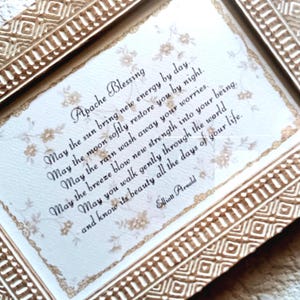 Apache Blessing
May the sun bring new energy by day,
May the moon softly restore you by night.
May the rain wash away your worries.
May the breeze blow new strength into your being.
May you walk gently through the world
and know its beauty all the day of your life.